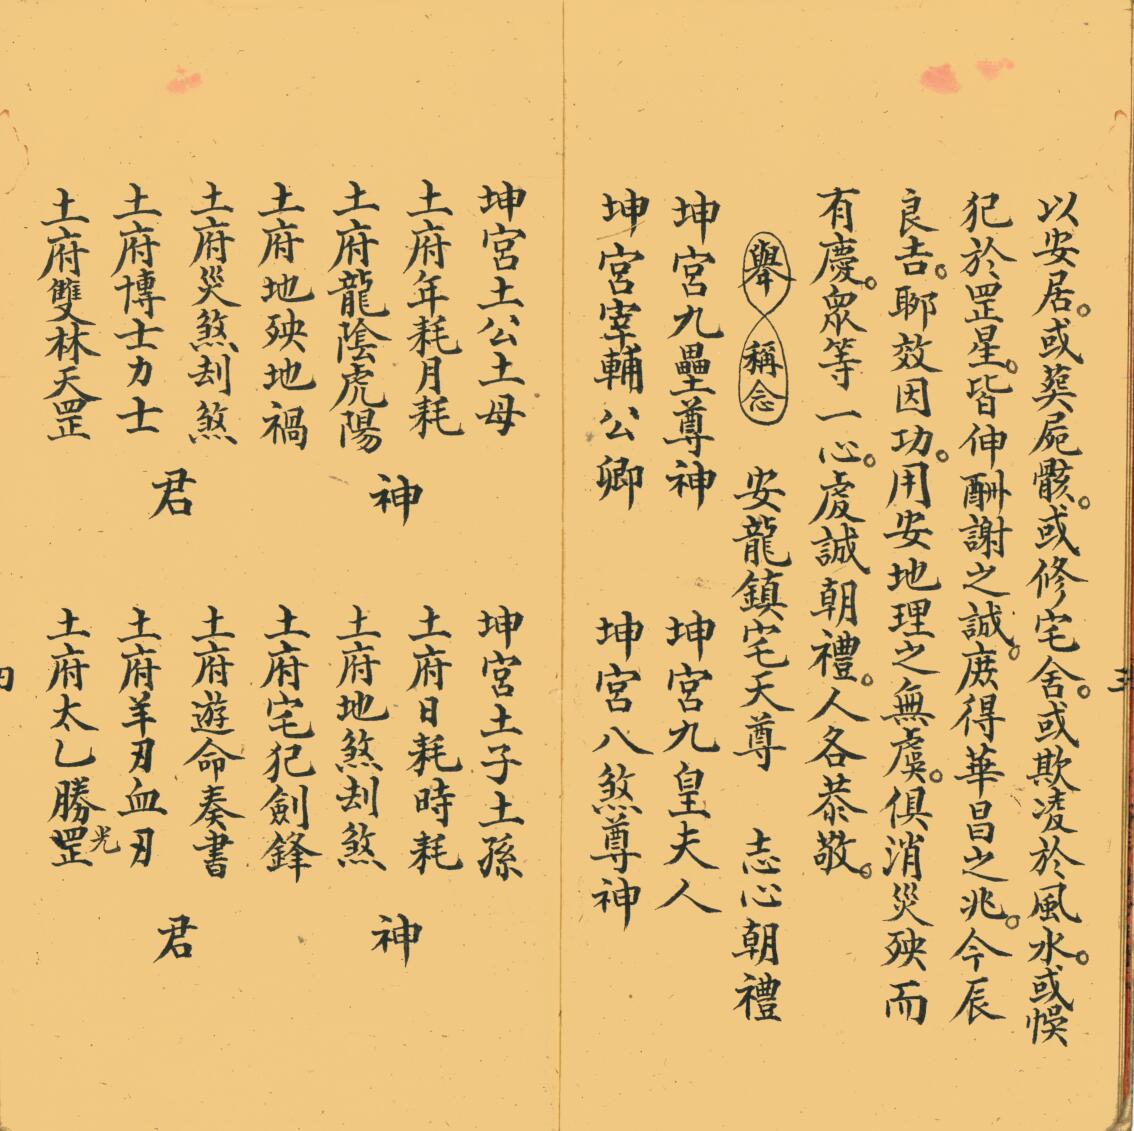 以安居。或葬屍骸。或修宅舍。或欺凌於風水。或悞
犯於罡星。皆伸酬謝之誠。庶得華昌之兆。今辰
良吉。聊效因功。用安地理之無虞。俱消災殃而
有慶。衆等一心。虔誠朝禮。人各恭敬。
舉 稱念 安龍鎮宅天尊 志心朝禮
坤宮九壘尊神 坤宮九皇夫人
坤宮宰輔公卿 坤宮八煞尊神
三
坤宮土公土母 坤宮土子土孫
土府年耗月耗 土府日耗時耗
神 神
土府龍陰虎陽 土府地煞刦煞
土府地殃地禍 土府宅犯劍鋒
土府災煞刦煞 土府遊命奏書
君 君
土府博士力士 土府羊刃血刃
土府雙林天罡 土府太乙勝罡
光